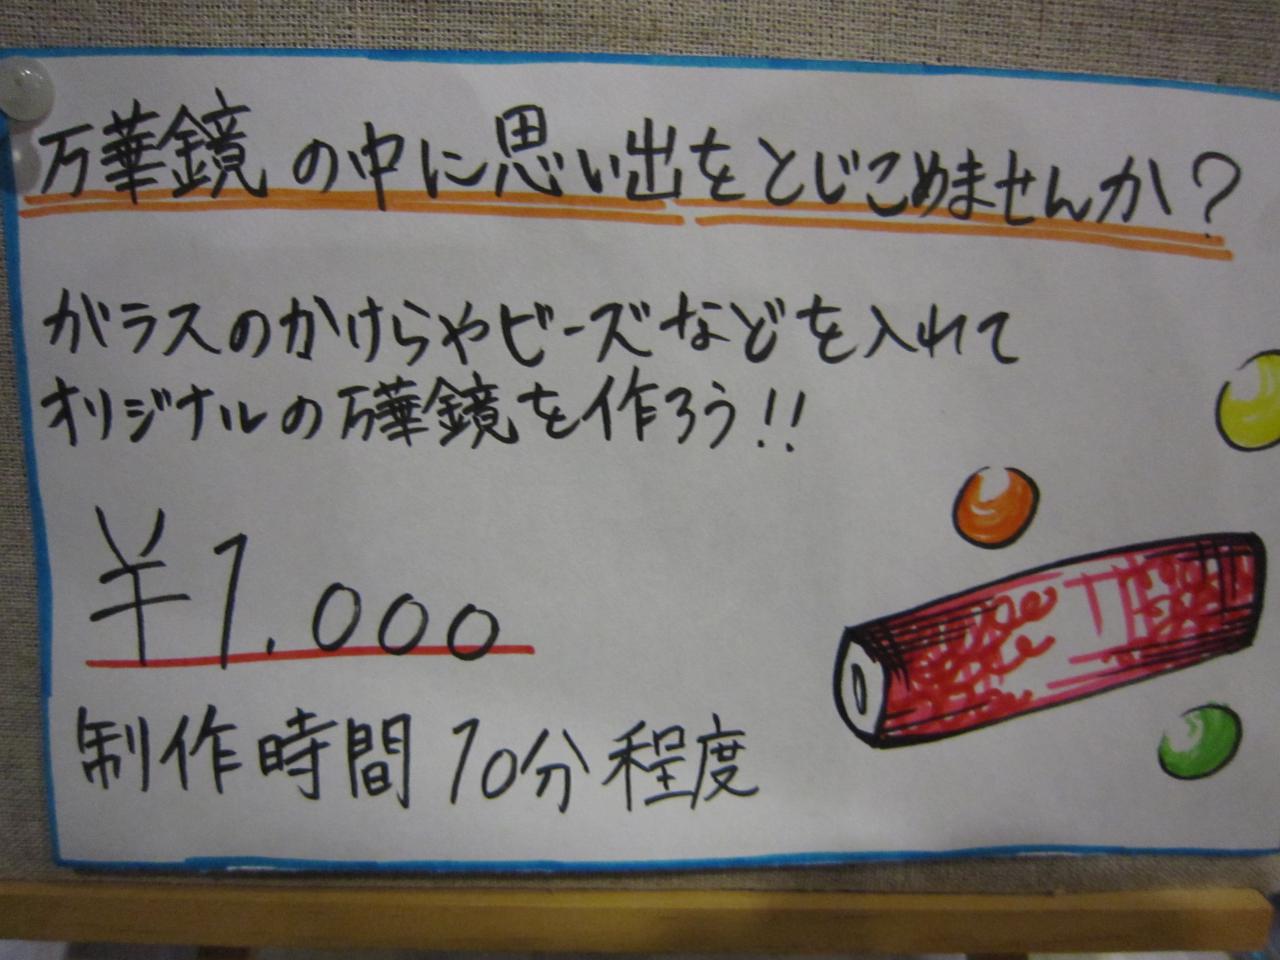 万華鏡の中に思い出をとじこめませんか?
ガラスのかけらやビーズなどを入れて
オリジナルの万華鏡を作ろう!!
¥1.000
制作時間 10分程度